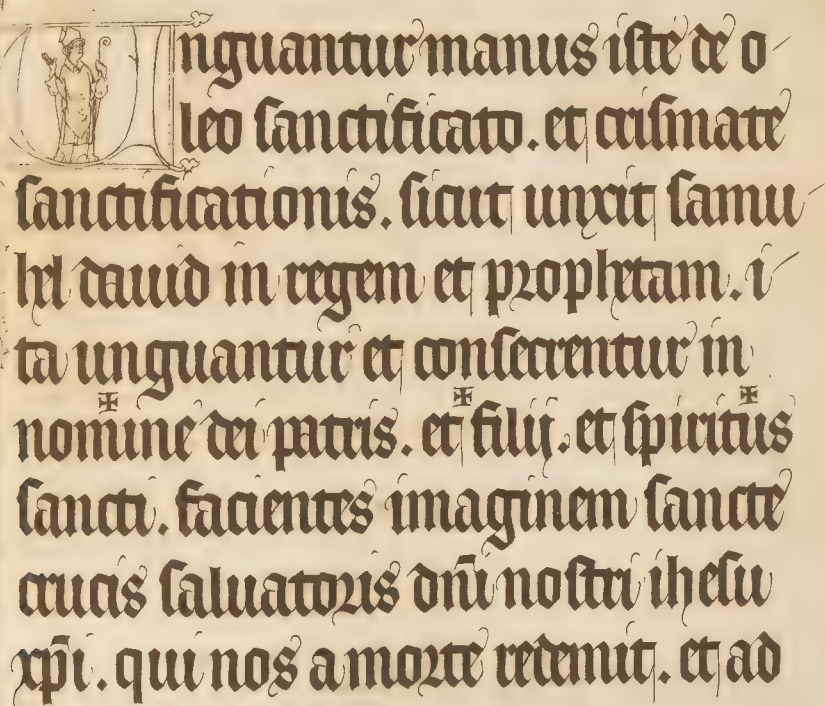 Unguantur manus iste de o
leo sanctificato. et crismate
sanctificationis. sicut unxit samu
hel dauid in regem et prophetam. i
ta unguantur et consecrentur in
no✠mine dei patris. et ✠ filij. et spirit✠us
sancti. facientes imaginem sancte
crucis saluatoris dn̄i nostri ihesu
xp̄i. qui nos a morte redemit. et ad